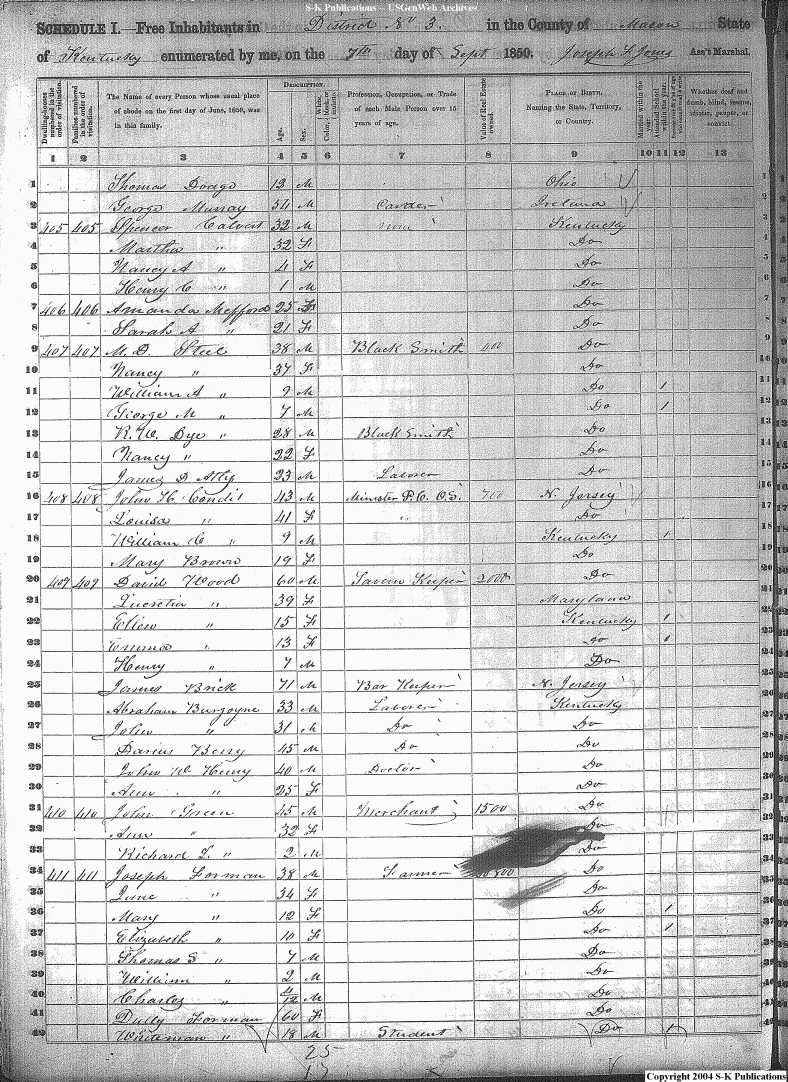 S-K Publications – USGenWeb Archives
SCHEDULE I. Free Inhabitants in District No 3. in the County of Mason State
of Kentucky enumerated by me, on the 7th day of Sept 1850. Ass't Marshal.
Dwelling-houses numbered in the order of visitation. Families numbered in the order of visitation. The Name of every Person whose usual place of abode on the first day of June, 1850, was in this family. Description. Age. Sex. White, black, or mulatto. Color, Profession, Occupation, or Trade of each Male Person over 15 years of age. Value of Real Estate owned. Place of Birth. Naming the State, Territory, or Country. Married within the year. Attended School within the year. Whether deaf and dumb, blind, insane, idiotic, pauper, or convict.
1 2 3 4 5 6 7 8 9 10 11 12 13
1 Thomas Dodge 13 M Ohio 1
2 George Murray 34 M Carder Ireland 2
3 405 405 Spencer Calvert 32 M none Kentucky 3
4 Martha " 32 F Do 4
5 Nancy A " 4 F Do 5
6 Henry C " 1 M Do 6
7 406 406 Amanda Mefford 25 F Do 7
8 Sarah A " 21 F Do 8
9 407 407 M. D. Steel 38 M Black Smith 400 Do 9
10 Nancy " 37 F Do 10
11 William A " 9 M Do 1 11
12 George M " 7 M Do 1 12
13 R. W. Dye " 28 M Black Smith Do 13
14 Nancy " 22 F Do 14
15 James D 23 M Laborer Do 15
16 408 408 John H. Condit 43 M Minister P. C. O.S. 700 N. Jersey 16
17 Louisa " 41 F " Do 17
18 William C " 9 M Kentucky 1 18
19 Mary Brown 19 F Do 19
20 409 409 David Wood 60 M Tavern Keeper 2000 Do 20
21 Lucretia " 39 F Maryland 21
22 Ellen " 15 F Kentucky 1 22
23 Emma " 13 F Do 1 23
24 Henry " 7 M Do 24
25 James Brick 71 M Bar Keeper N. Jersey 25
26 Abraham Burgoyne 33 M Laborer Kentucky 26
27 John " 31 M Do Do 27
28 Darius Berry 45 M Do Do 28
29 John W Henry 40 M Doctor Do 29
30 Ann " 25 F Do 30
31 410 410 John Green 45 M Merchant 1500 Do 31
32 Ann " 32 F Do 32
33 Richard L. " 2 M Do 33
34 411 411 Joseph Forman 38 M Farmer Do 34
35 June " 34 F Do 35
36 Mary " 12 F Do 1 36
37 Elizabeth " 10 F Do 1 37
38 Thomas S " 7 M Do 38
39 William " 2 M Do 39
40 Charles " 4/12 M Do 40
41 Dully Forman 60 F Do 41
42 Whiteman " 18 M Student Do 1 42
25
17
Copyright 2004 S-K Publications